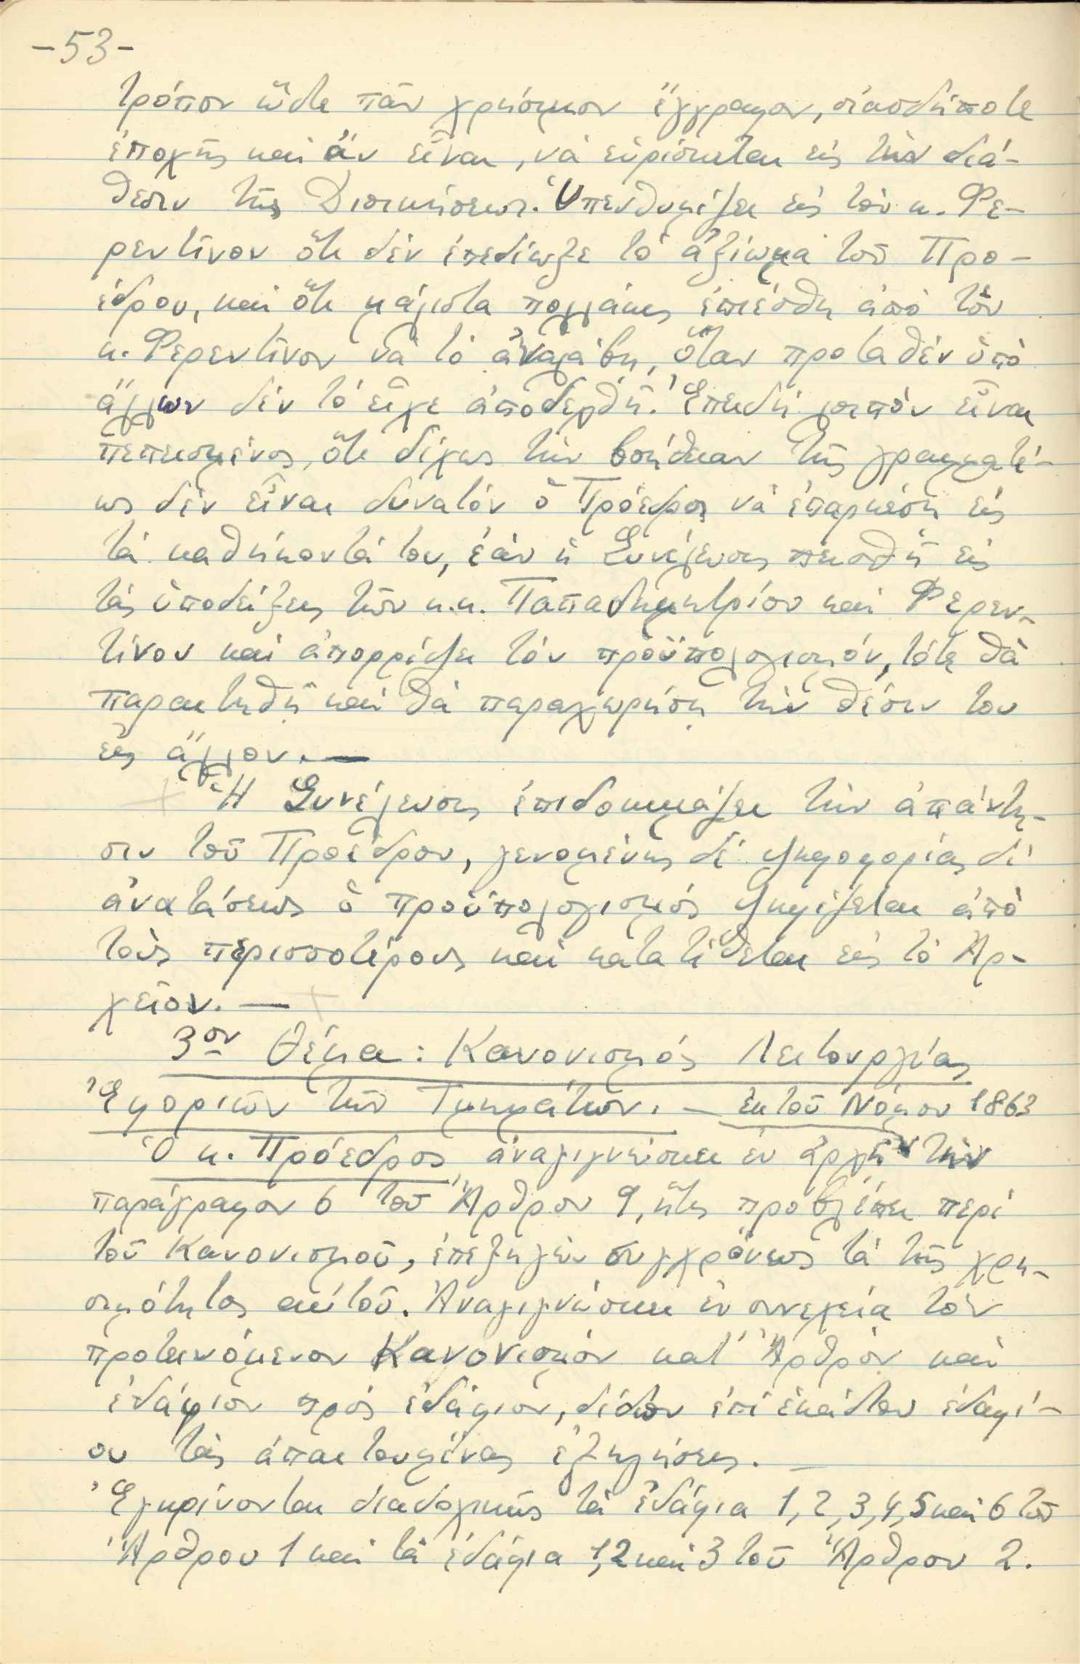 -53-
τρόπον ὥστε πᾶν χρήσιμον ἔγγραφον, οἱασδήποτε
ἐποχῆς καὶ ἂν εἶναι, νὰ εὑρίσκεται εἰς τὴν διά-
θεσιν τῆς Διοικήσεως. Ὑπενθυμίζει εἰς τὸν κ. Φε-
ρεντῖνον ὅτι δὲν ἐπεδίωξε τὸ ἀξίωμα τοῦ Προ-
έδρου, καὶ ὅτι μάλιστα πολλάκις ἐπιέσθη ἀπὸ τὸν
κ. Φερεντῖνον νὰ τὸ ἀναλάβη, ὅταν προταθὲν ὑπὸ
ἄλλων δὲν τὸ εἶχε ἀποδεχθῆ. Ἐπειδὴ λοιπὸν εἶναι
πεπεισμένος, ὅτι δίχως τὴν βοήθειαν τῆς γραμματέ-
ως δὲν εἶναι δυνατὸν ὁ Πρόεδρος νὰ ἐπαρκέση εἰς
τὰ καθήκοντά του, ἐὰν ἡ Συνέλευσις πεισθῆ εἰς
τὰς ὑποδείξεις τῶν κ.κ. Παπαδημητρίου καὶ Φερεν-
τίνου καὶ ἀπορρίψει τὸν προϋπολογισμόν, τότε θὰ
παραιτηθῆ καὶ θὰ παραχωρήση τὴν θέσιν του
εἰς ἄλλον. —
Ἡ Συνέλευσις ἐπιδοκιμάζει τὴν ἀπάντη-
σιν τοῦ Προέδρου, γενομένης δὲ ψηφοφορίας δι'
ἀνατάσεως ὁ προϋπολογισμὸς ψηφίζεται ἀπὸ
τοὺς περισσοτέρους καὶ κατατίθεται εἰς τὸ Ἀρ-
χεῖον. —
3ον Θέμα: Κανονισμὸς Λειτουργίας
Ἐφοριῶν τῶν Τμημάτων. — ἐκ τοῦ Νόμου 1863
Ὁ κ. Πρόεδρος ἀναγιγνώσκει ἐν ἀρχῆ τὴν
παράγραφον 6 τοῦ Ἄρθρου 9, ἥτις προβλέπει περὶ
τοῦ Κανονισμοῦ, ἐπεξηγῶν συγχρόνως τὰ τῆς χρη-
σιμότητος αὐτοῦ. Ἀναγιγνώσκει ἐν συνεχεία τὸν
προτεινόμενον Κανονισμὸν κατ' Ἄρθρον καὶ
ἐδάφιον πρὸς ἐδάφιον, δίδων ἐπὶ ἑκάστου ἐδαφί-
ου τὰς ἀπαιτουμένας ἐξηγήσεις. —
Ἐγκρίνονται διαδοχικῶς τὰ ἐδάφια 1, 2, 3, 4, 5 καὶ 6 τοῦ
Ἄρθρου 1 καὶ τὰ ἐδάφια 1, 2 καὶ 3 τοῦ Ἄρθρου 2.